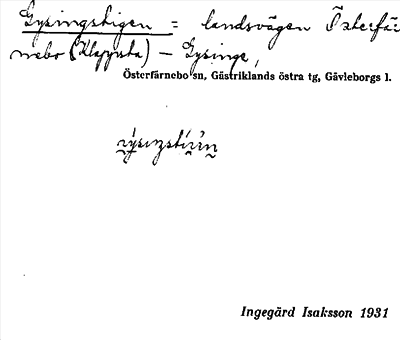 Gysingstigen = landsvägen Österfär
nebo (Klappsta) – Gysinge,
Österfärnebo sn, Gästriklands östra tg, Gävleborgs l.
Ingegärd Isaksson 1931